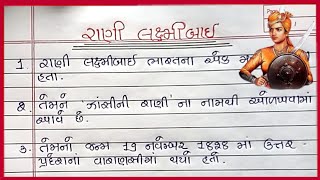 રાણી લક્ષ્મીબાઈ
1. રાણી લક્ષ્મીબાઈ ભારતના એક
હતા.
2. તેમને 'ઝાંસીની રાણી' ના નામથી ઓળખવામાં
આવે છે.
3. તેમનો જન્મ 19 નવેમ્બર 1828 માં ઉત્તર
પ્રદેશના વારાણસીમાં થયો હતો.